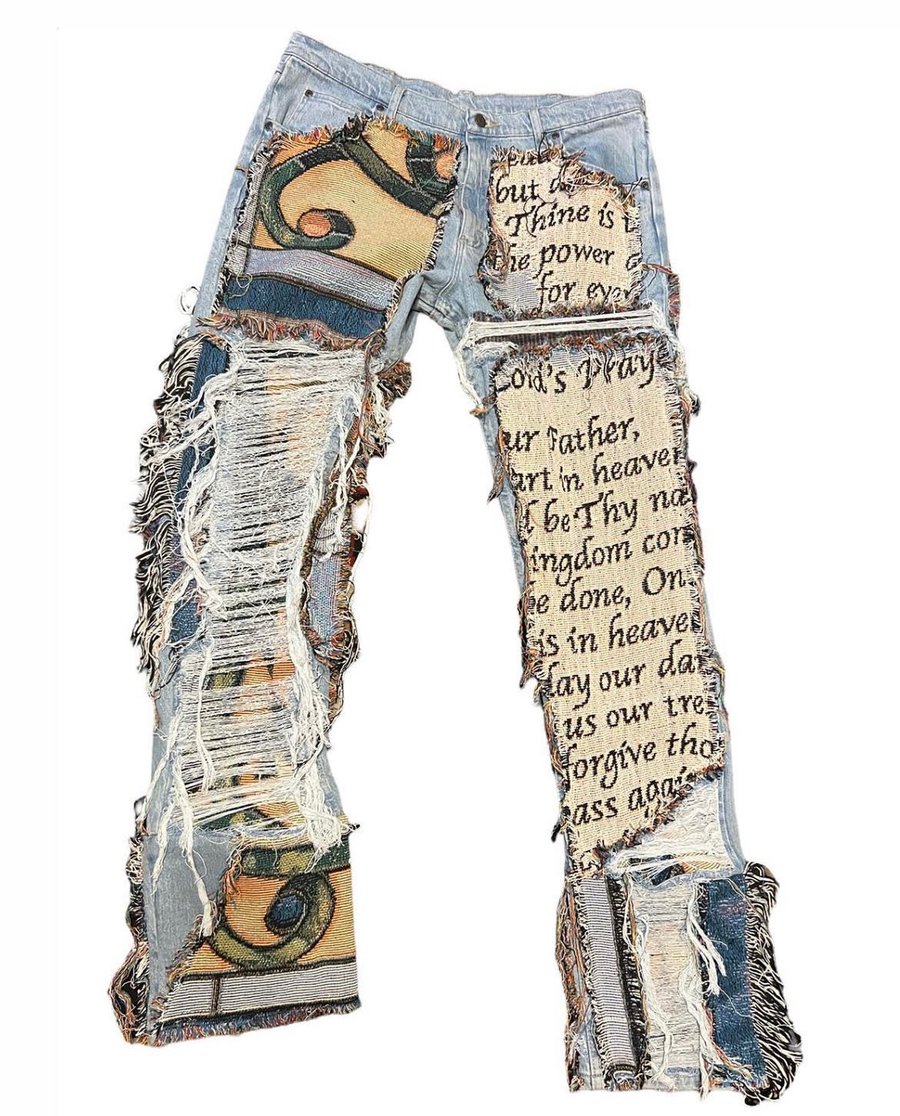 but
Thine is
the power
for ever
Lord's Pray
ur Father,
art in heaven
be Thy na
ingdom com
be done, On
is in heaven
day our dai
us our tre
forgive tho
pass again